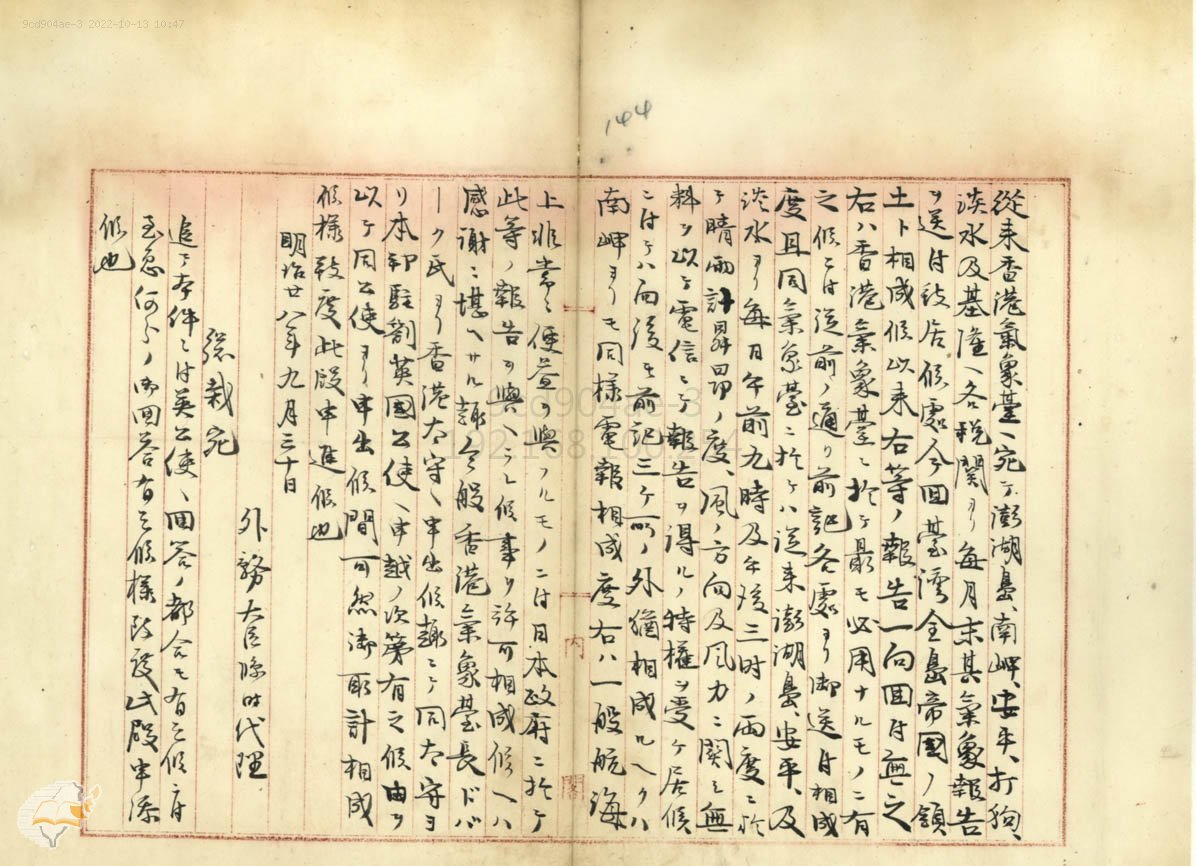 9cd904ae-3 2022-10-13 10:47
144
從来香港氣象臺ヘ宛テ澎湖島、南岬、安平、打狗、
淡水及基隆ヘ各税関ヨリ毎月末其氣象報告
ヲ送付致居候處今回臺湾全島帝國ノ領
土ト相成候以来右等ノ報告一向回付無之
右ハ香港氣象臺ニ於テ最モ必用ナルモノニ有
之候ニ付従前ノ通リ前記各處ヨリ御送付相成
度且同氣象臺ニ於テハ従来澎湖島、安平、及
淡水ヨリ毎日午前九時及午後三時ノ両度ニ於
テ晴雨計昇昂ノ度、風ノ方向及風力ニ関シ無
料ヲ以テ電信ニテ報告ヲ得ルノ特権ヲ受ケ居候
ニ付テハ向後モ前記三ヶ所ノ外猶相成ルヘクハ
南岬ヨリモ同様電報相成度右ハ一般航海
上非常ニ便益ヲ與フルモノニ付日本政府ニ於テ
此等ノ報告ヲ與ヘラレ候事ヲ許可相成候ヘハ
感謝ニ堪ヘサル趣今般香港氣象臺長ドバ
ーク氏ヨリ香港太守ヘ申出候趣ニテ同太守ヨ
リ本邦駐劄英國公使ヘ申越ノ次第有之候由ヲ
以テ同公使ヨリ申出候間可然御取計相成
候様致度此段申進候也
明治廿八年九月三十日
外務大臣臨時代理
総裁宛
追テ本件ニ付英公使ヘ回答ノ都合モ有之候ニ付
至急何分ノ御回答有之候様致度此段申添
候也
内
閣
9cd904ae-3